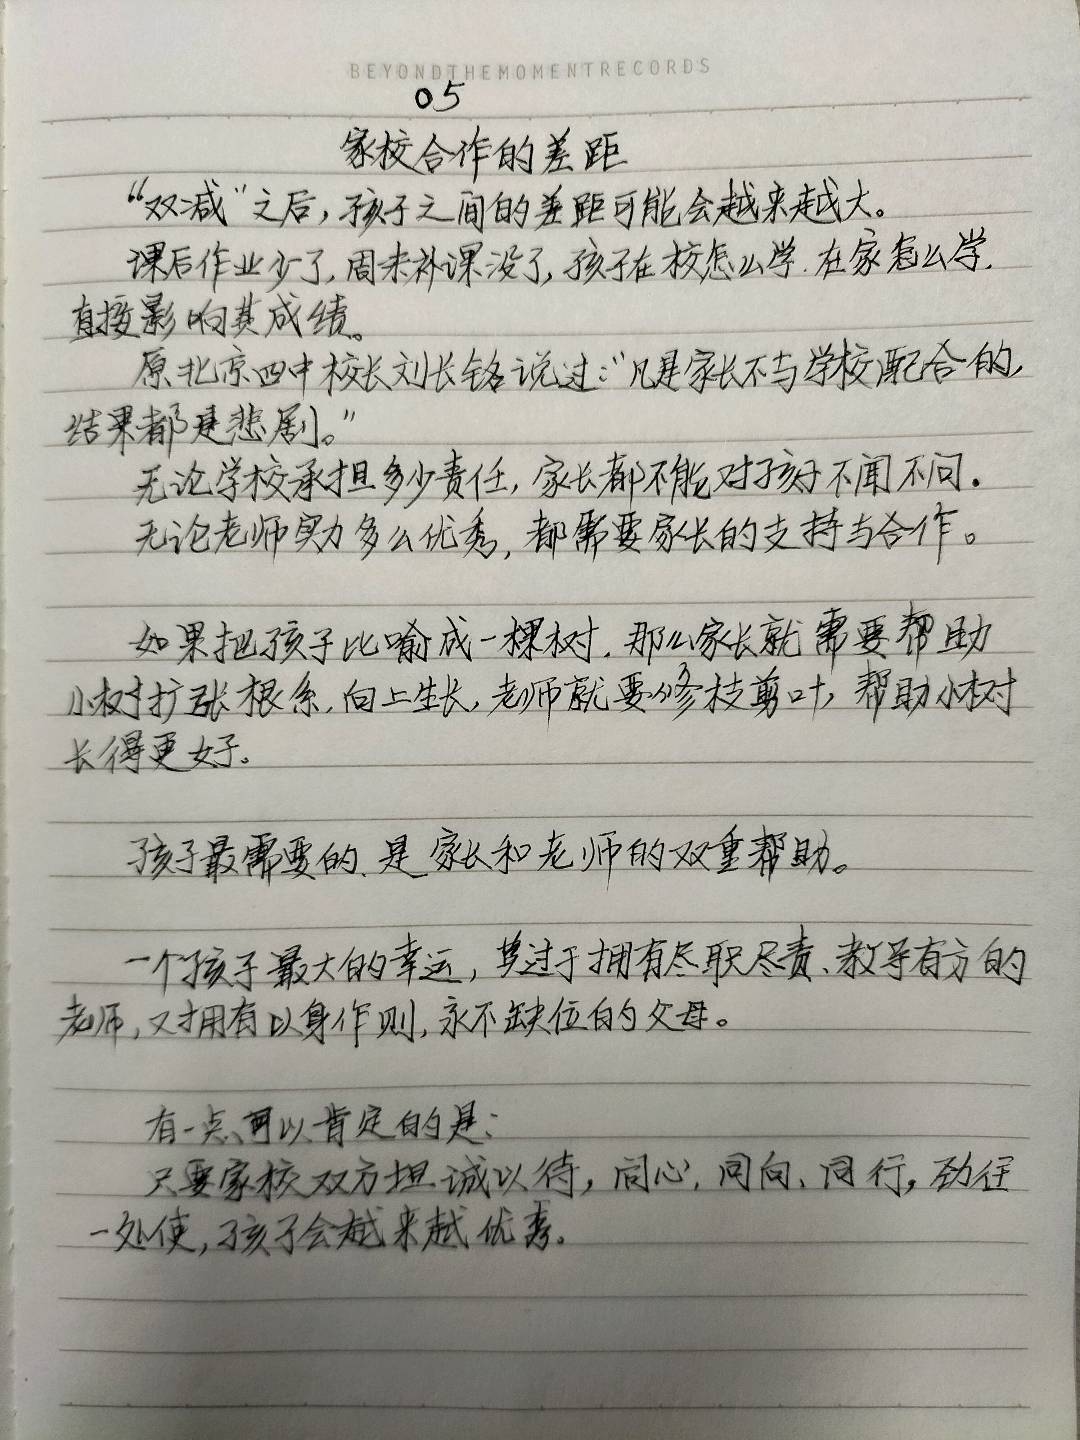 BEYONDTHEMOMENTRECORDS
05
家校合作的差距
“双减”之后，孩子之间的差距可能会越来越大。
课后作业少了，周末补课没了，孩子在校怎么学、在家怎么学，
直接影响其成绩。
原北京四中校长刘长铭说过：“凡是家长不与学校配合的，
结果都是悲剧。”
无论学校承担多少责任，家长都不能对孩子不闻不问。
无论老师实力多么优秀，都需要家长的支持与合作。
如果把孩子比喻成一棵树，那么家长就需要帮助
小树扩张根系，向上生长，老师就要修枝剪叶，帮助小树
长得更好。
孩子最需要的、是家长和老师的双重帮助。
一个孩子最大的幸运，莫过于拥有尽职尽责、教导有方的
老师，又拥有以身作则，永不缺位的父母。
有一点可以肯定的是：
只要家校双方坦诚以待，同心、同向、同行，劲往
一处使，孩子会越来越优秀。